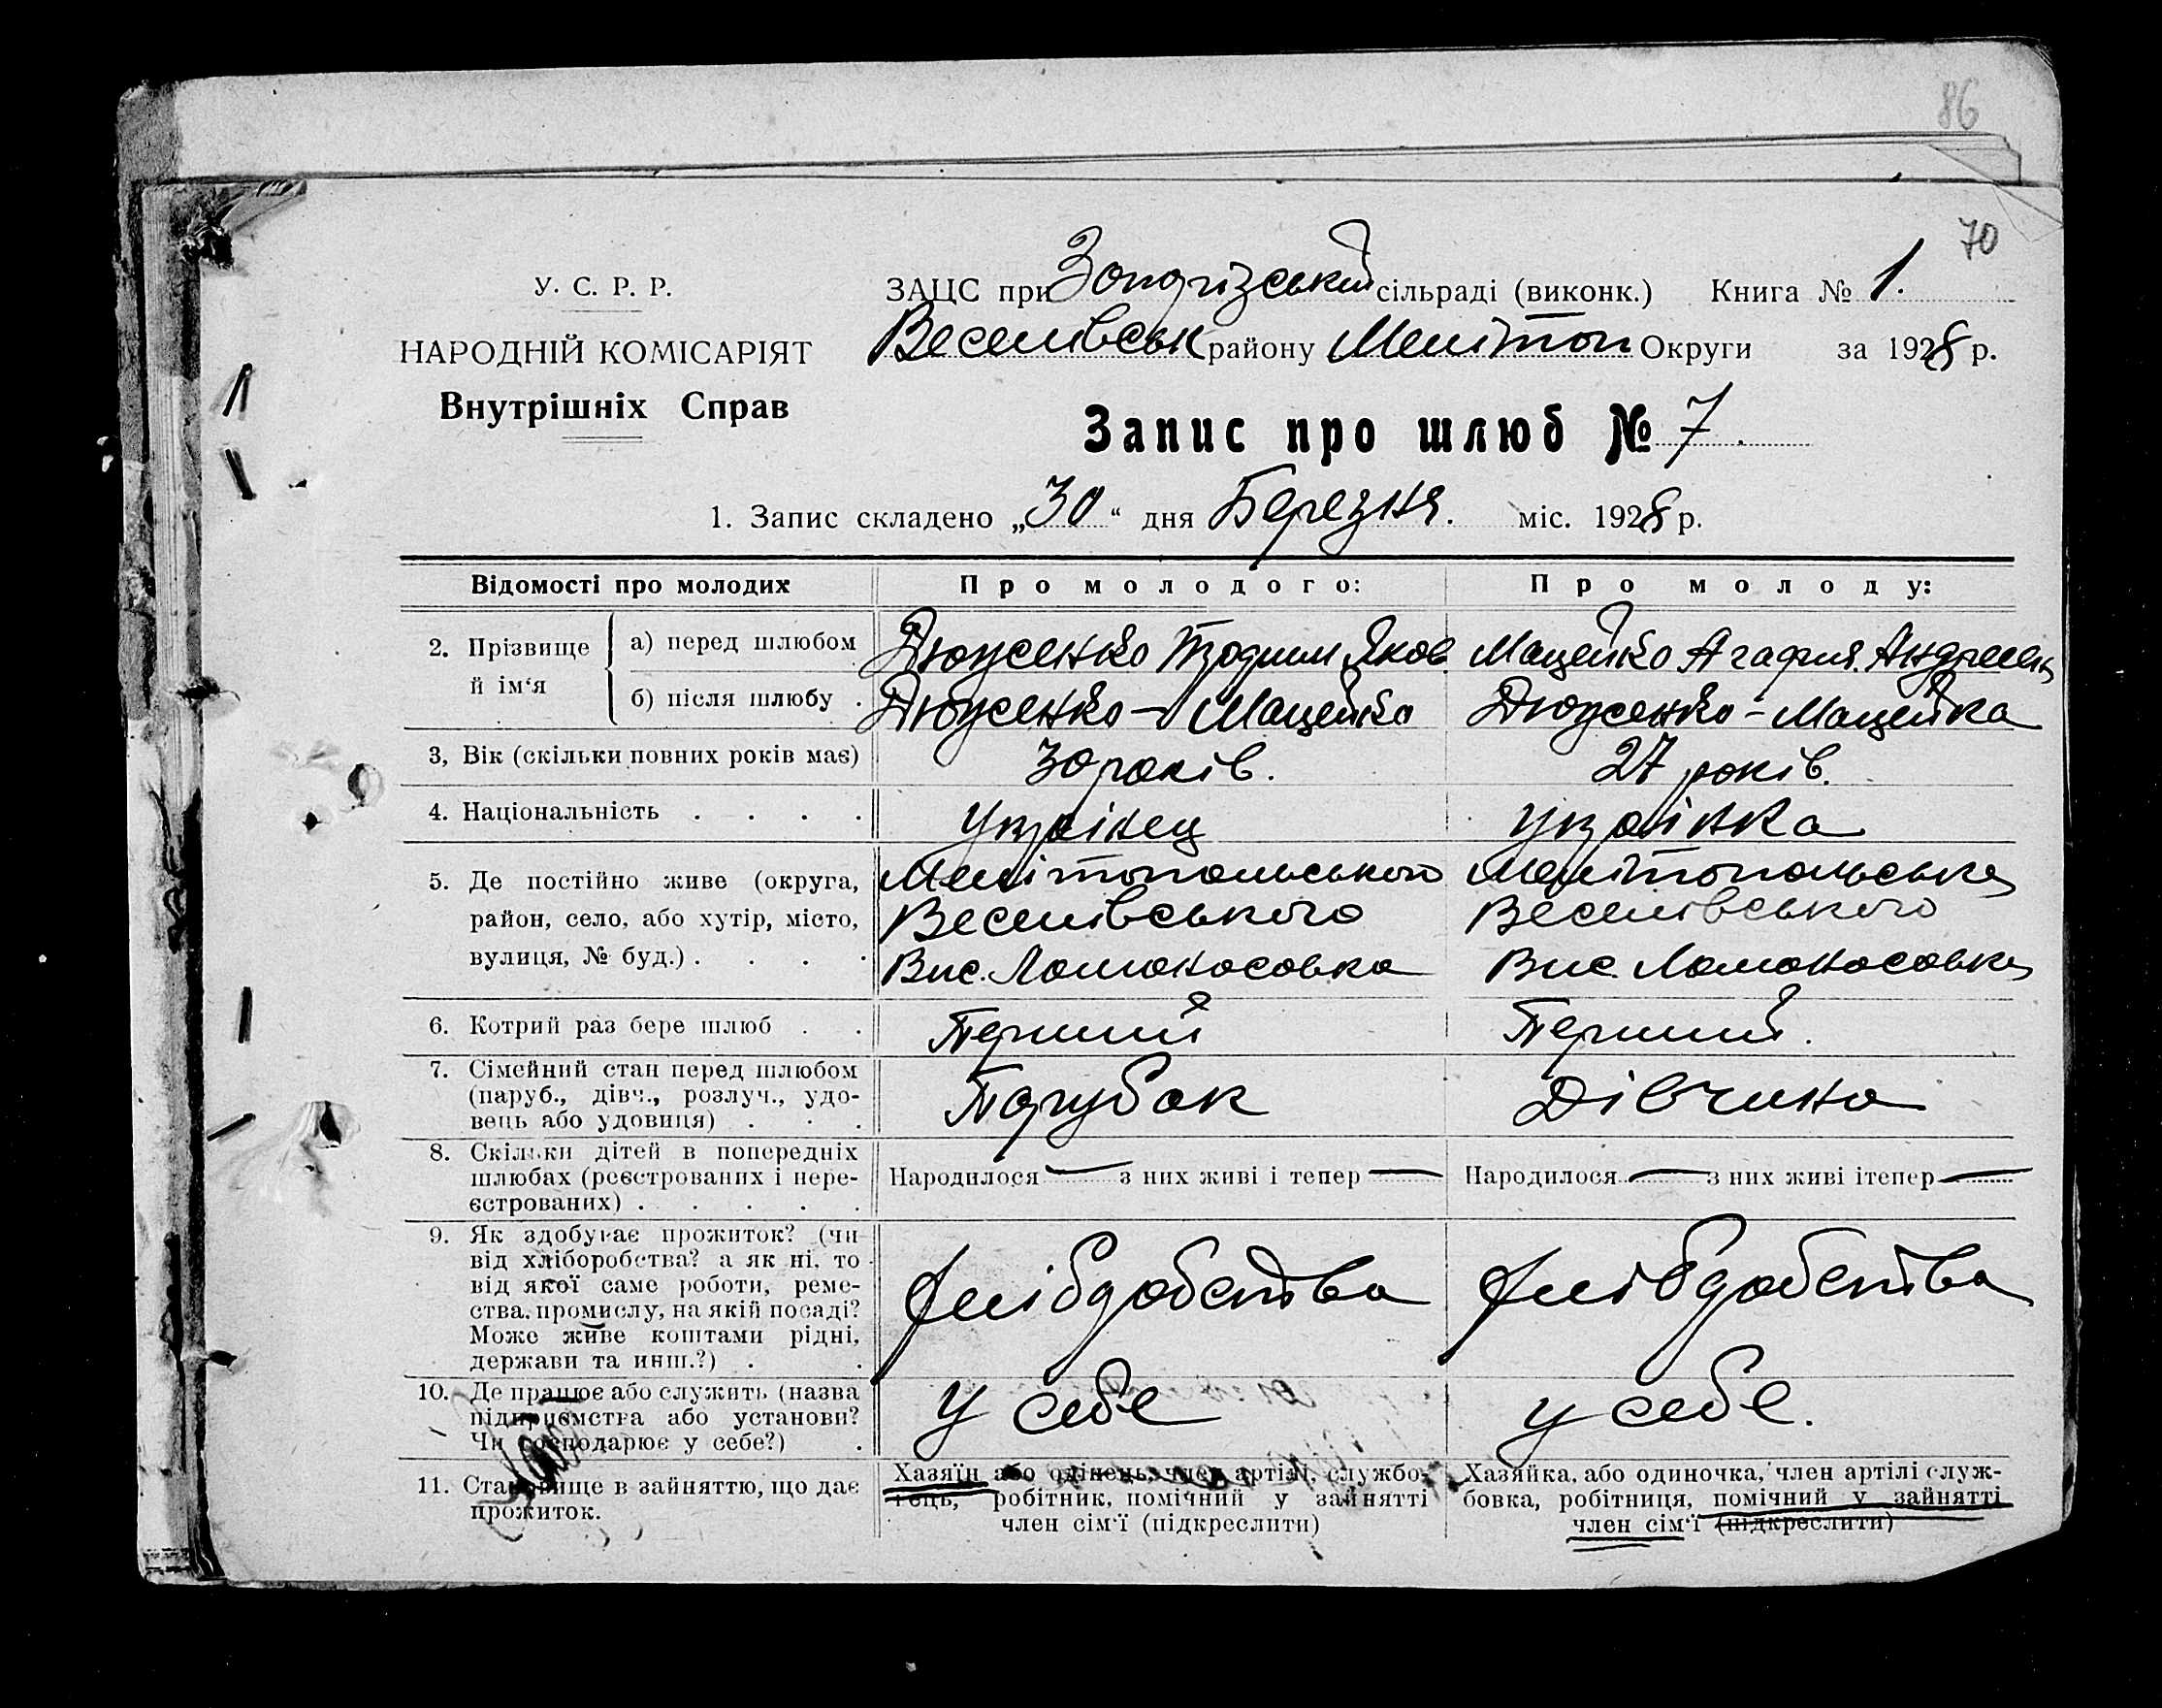 86
70
У. С. Р. Р.
НАРОДНІЙ КОМІСАРІЯТ
Внутрішніх Справ
ЗАЦС при сільраді (виконк.) Книга № 1.
Веселівськ району Мелітоп Округи за 1928 р.
Запис про шлюб № 7.
1. Запис складено „30“ дня Березня. міс. 1928 р.
Відомості про молодих Про молодого: Про молоду:
2. Прізвище й ім‘я
а) перед шлюбом Дюженко Яков Мацейко Агафия
б) після шлюбу Дюженко - Мацейко Дюженко - Мацейка
3, Вік (скільки повних років має) 30 років. 27 років.
4. Національність . . . . Украінец Украінка
5. Де постійно живе (округа, район, село, або хутір, місто, вулиця, № буд.) . . . .
Мелітопольського Мелітопольська
Веселівського Веселівського
Вис. Ломоносовка Вис. Ломоносовка
6. Котрий раз бере шлюб . . Перший Перший.
7. Сімейний стан перед шлюбом
(паруб., дівч., розлуч., удо-
вець або удовиця) . . . Парубок Дівчина
8. Скільки дітей в попередніх
шлюбах (реєстрованих і нере-
єстрованих) . . . . .
Народилося — з них живі і тепер — Народилося — з них живі ітепер —
9. Як здобуває прожиток? (чи
від хліборобства? а як ні, то
від якої саме роботи, реме-
ства, промислу, на якій посаді?
Може живе коштами рідні,
держави та инш.?) . .
10. Де працює або служить (назва
підприємства або установи?
Чи господарює у себе?) . У себе У себе.
11. Становище в зайняттю, що дає
прожиток.
Хазяїн або одінець, член артілі, службо-
вець, робітник, помічний у зайнятті
член сім‘ї (підкреслити)
Хазяйка, або одиночка, член артілі служ-
бовка, робітниця, помічний у зайнятті
член сім‘ї (підкреслити)